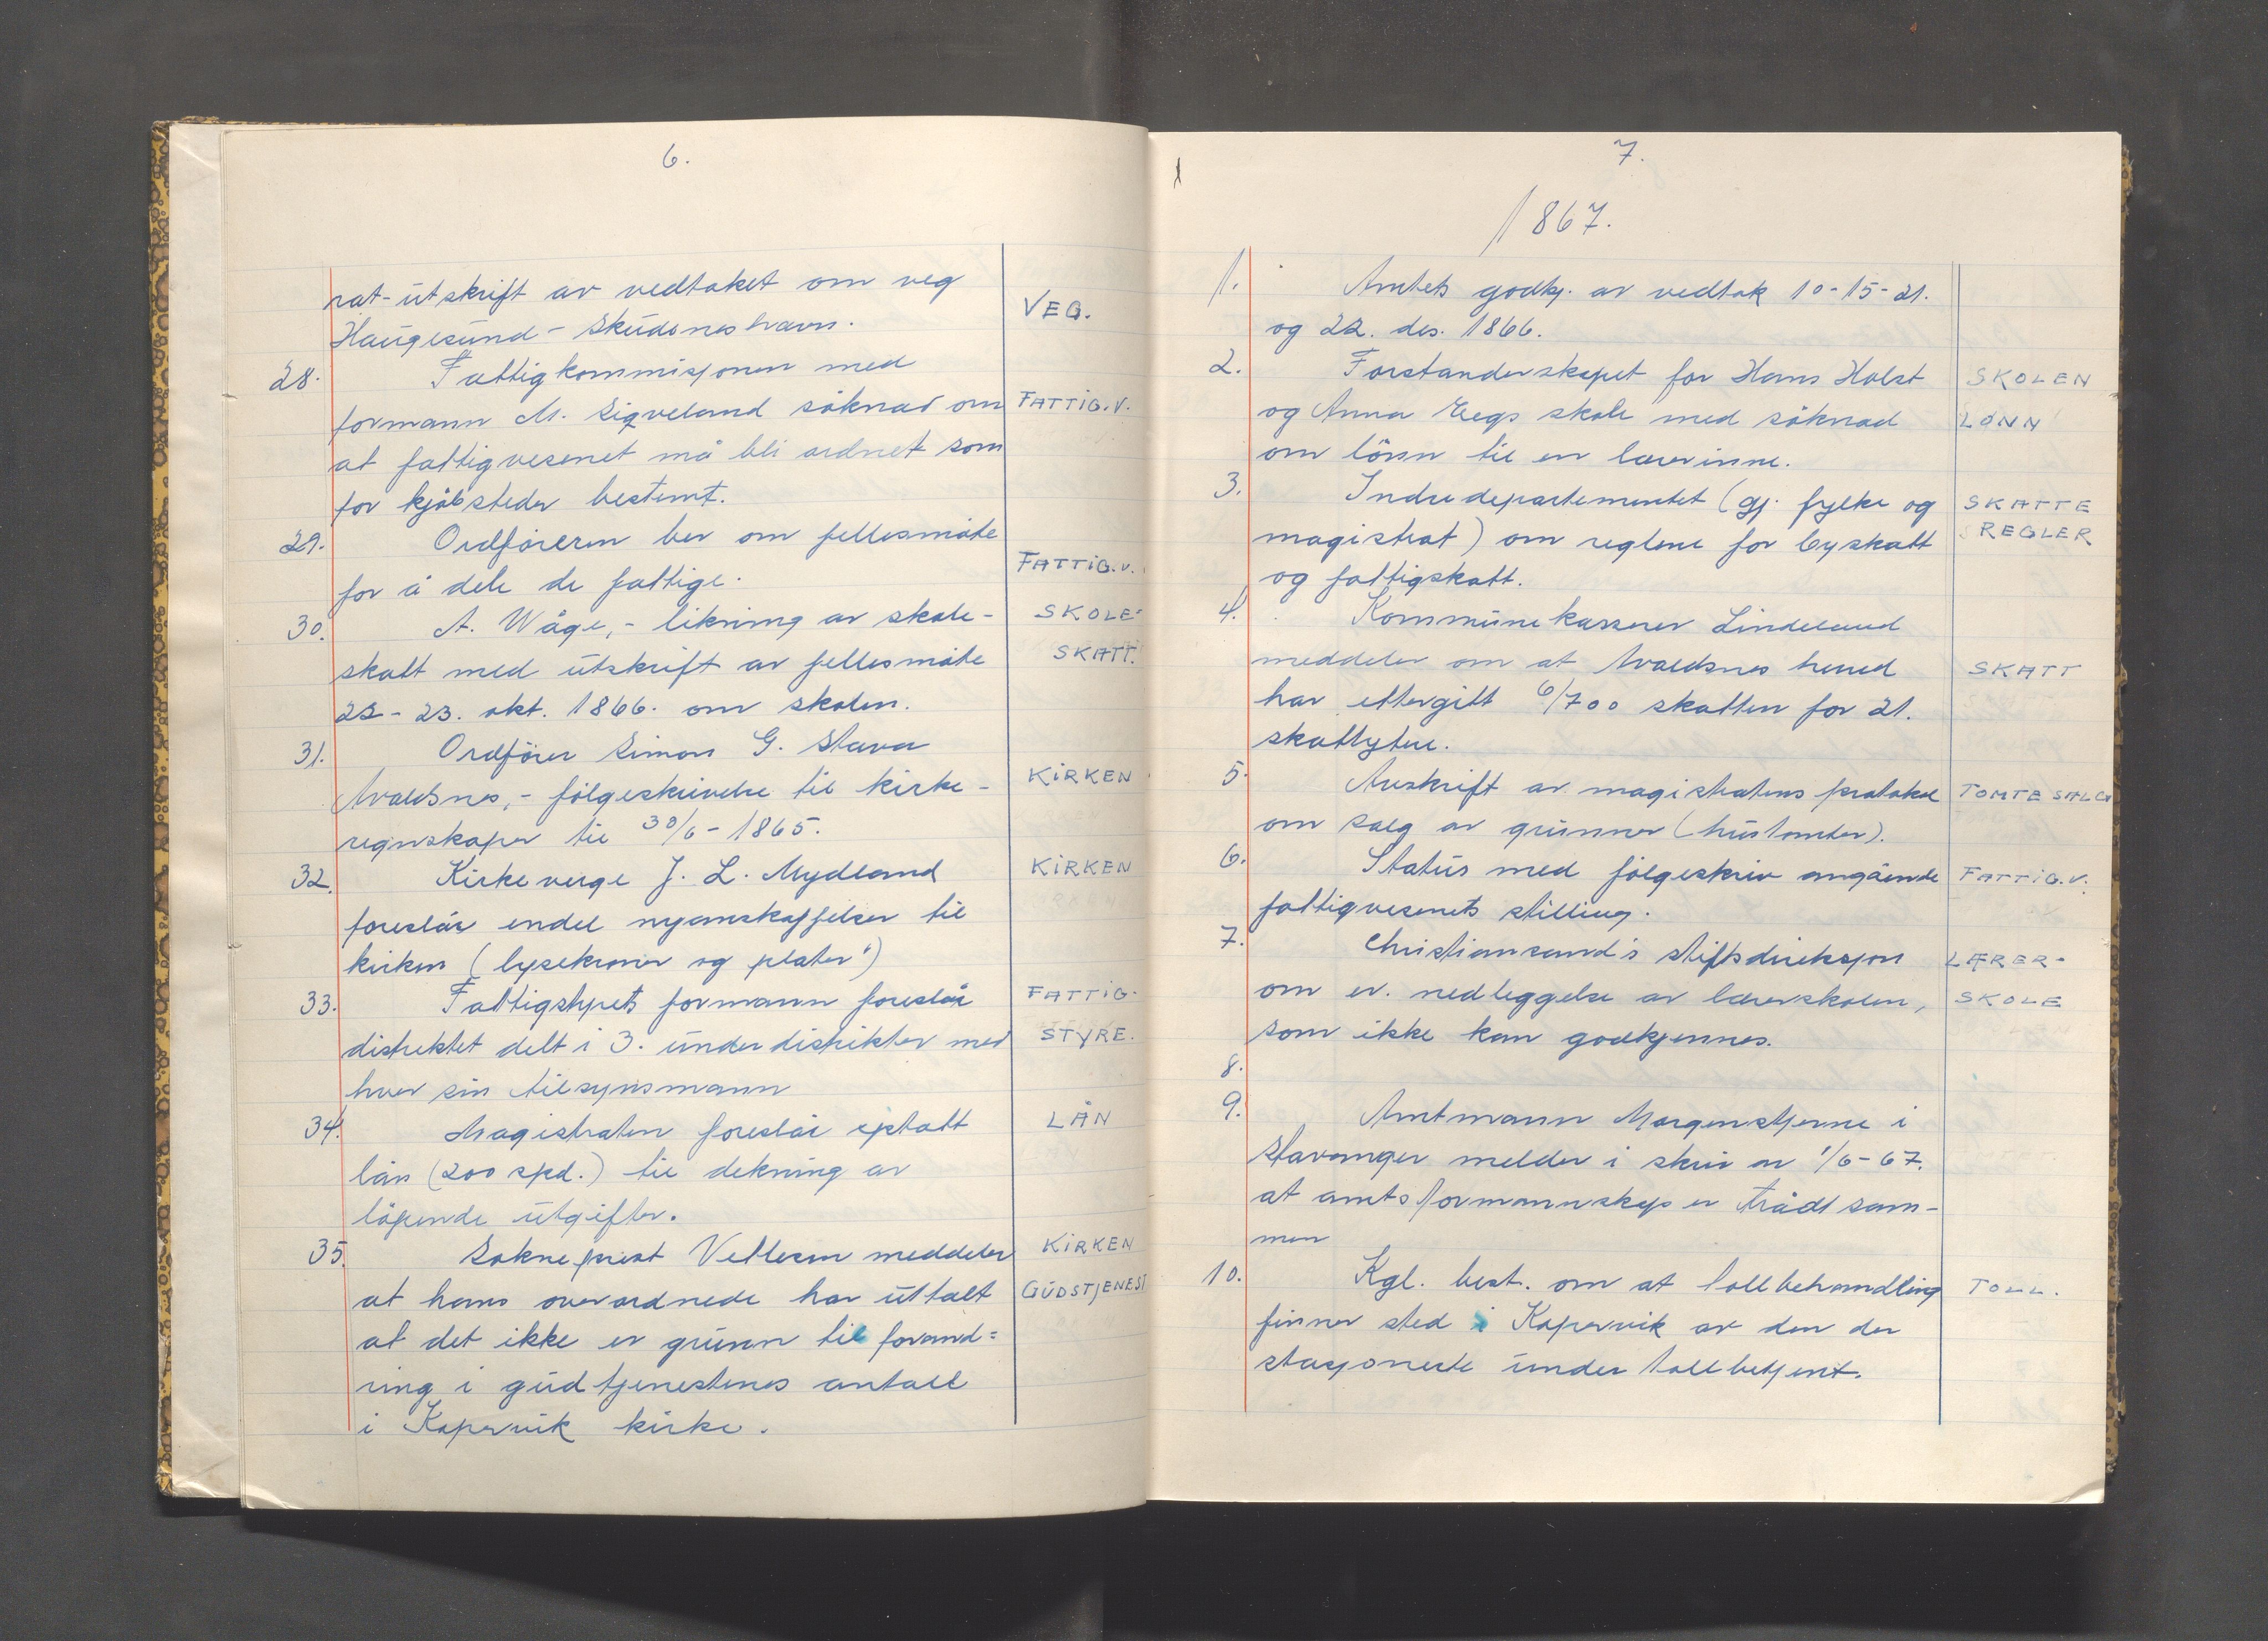 6.
rat-utskrift av vedtaket om veg
Haugesund - Skudesneshavn.
VEG.
28. Fattigkommisjonen med
formann M. Sigveland söknad om
FATTIG.V.
at fattigvesenet må bli ordnet som
for kjöbsteder bestemt.
29. Ordföreren ber om fellesmöte
for å dele de fattige.
FATTIG.V.
30. A. Våge,- likning av skole-
SKOLE-
skatt med utskrift av fellesmöte
SKATT.
22- 23. okt. 1866. om skolen.
31. Ordförer Simon G. Stava
Avaldsnes,- fölgeskrivelse til kirke-
KIRKEN
regnskaper til 30/6- 1865.
32. Kirkeverge J. L. Mydland
KIRKEN
foreslår endel nyanskaffelser til
kirken (lysekroner og plater")
33. Fattigstyrets formann foreslår
FATTIG-
distriktet delt i 3. underdistrikter med
STYRE.
hver sin tilsynsmann
34. Magistraten foreslår opptatt
LÅN
lån (200 spd.) til dekning av
löpende utgifter.
35. Sokneprest Vellesen meddeler
KIRKEN
at hans overordnede har uttalt
GUDSTJENEST
at det ikke er grunn til forand=
ring i gudtjenestenes antall
i Kopervik kirke.
7.
1867.
1. Amtets godkj. av vedtak 10-15-21.
og 22. des. 1866.
2. Forstanderskapet for Hans Holst
SKOLEN
og Anna Eegs skole med söknad
LÖNN
om lönn til en lærerinne.
3. Indredepartementet (gj. fylke og
SKATTE
magistrat) om reglene for byskatt
REGLER
og fattigskatt.
4. Kommunekasserer Lindeland
meddeler om at Avaldsnes herred
SKATT
har ettergitt 6/700 skatten for 21.
skattytere.
5. Avskrift av magistratens protokol
TOMTESALG
om salg av grunner (hustomter).
6. Status med fölgeskriv angående
FATTIG.V.
fattigvesenets stilling.
7. Christiansand's stiftsdireksjon
LÆRER-
om ev. nedleggelse av lærerskolen,
SKOLE
som ikke kan godkjennes.
8.
9. Amtmann Morgenstjerne i
Stavanger melder i skriv av 1/6- 67.
at amtsformannskap er trådt sam-
men
10. Kgl. best. om at tollbehandling
TOLL.
finner sted i Kopervik av den der
stasjonerte undertollbetjent.